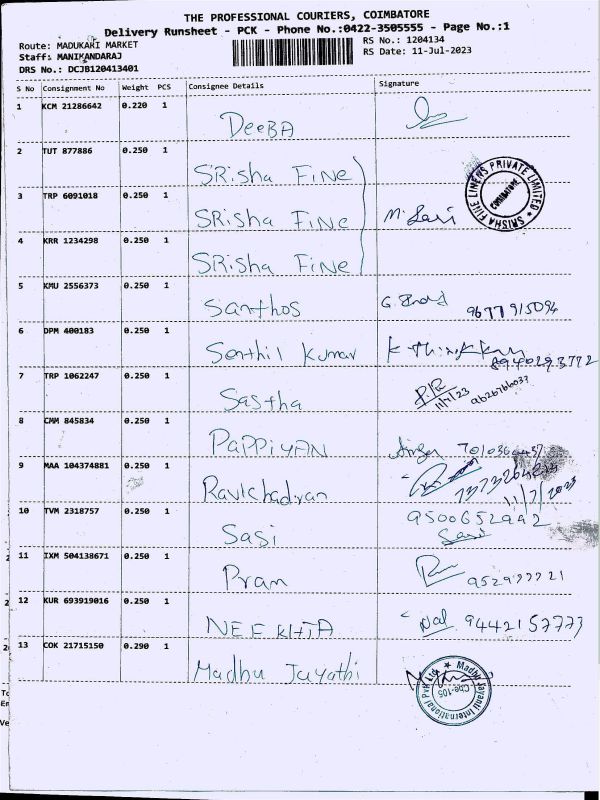 THE PROFESSIONAL COURIERS, COIMBATORE
Delivery Runsheet - PCK - Phone No.:0422-3505555 - Page No.:1
Route: MADUKARI MARKET
RS No.: 1204134
Staff: MANIKANDARAJ
RS Date: 11-Jul-2023
DRS No.: DCJB120413401
S No Consignment No Weight PCS Consignee Details Signature
1 KCM 21286642 0.220 1
DEEBA
2 TUT 877886 0.250 1
SRisha FiNe
3 TRP 6091018 0.250 1
SRisha FiNe
SRISHA FINE LINENS PRIVATE LIMITED
COIMBATORE
4 KRR 1234298 0.250 1
SRisha FiNe
5 KMU 2556373 0.250 1
Santhos 9677915094
6 DPM 400183 0.250 1
Senthil Kumar
8940293772
7 TRP 1062247 0.250 1
Sastha 11/7/23
8 CMM 845834 0.250 1
PAPPIYAN
9 MAA 104374881 0.250 1
Ravichadran
11/7/2023
10 TVM 2318757 0.250 1
9500652992
Sasi Sasi
11 IXM 504138671 0.250 1
Pran
12 KUR 693919016 0.250 1
NEEKHTA 9442157773
13 COK 21715150 0.290 1
Madhu Jayathi
Madhu Jayanti International Pvt Ltd
Cbe-105